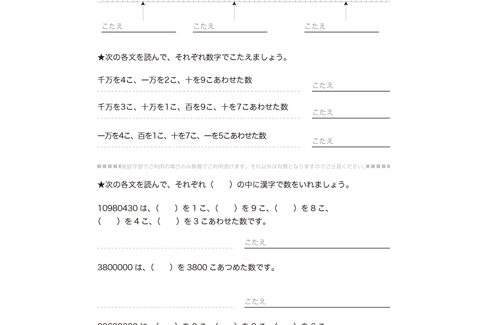 こたえ こたえ こたえ
★次の各文を読んで、それぞれ数字でこたえましょう。
千万を4こ、一万を2こ、十を9こあわせた数
こたえ
千万を3こ、十万を1こ、百を9こ、十を7こあわせた数
こたえ
一万を4こ、百を1こ、十を7こ、一を5こあわせた数
こたえ
★次の各文を読んで、それぞれ（　　）の中に漢字で数をいれましょう。
10980430 は、（　　）を 1 こ、（　　）を 9 こ、（　　）を 8 こ、
（　　）を 4 こ、（　　）を 3 こあわせた数です。
こたえ
3800000 は、（　　）を 3800 こあつめた数です。
こたえ